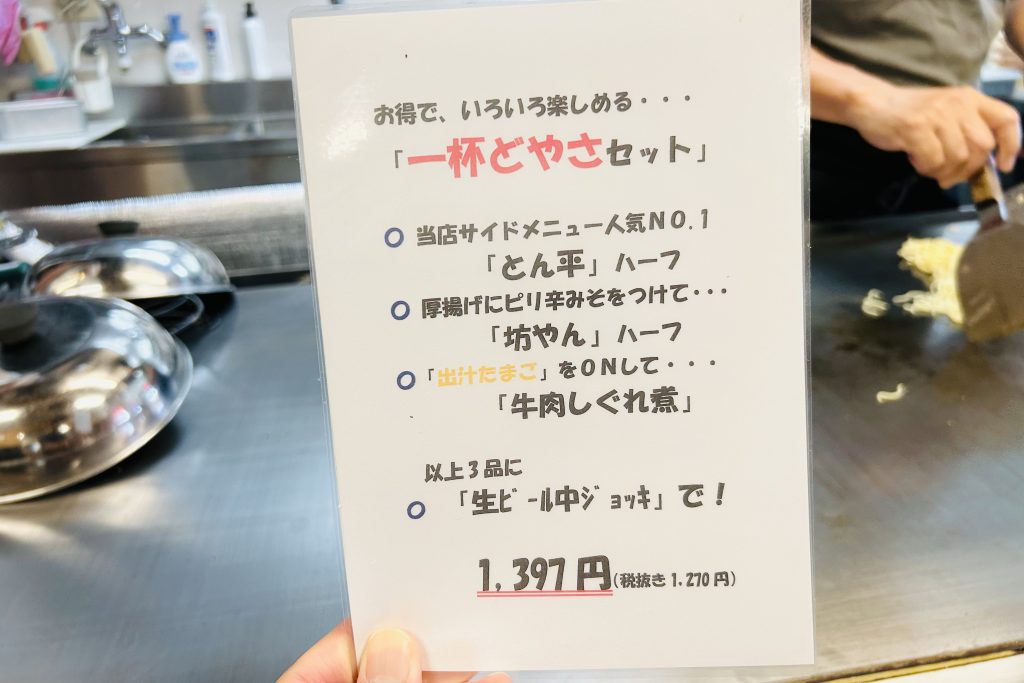 お得で、いろいろ楽しめる・・・
「一杯どやさセット」
○ 当店サイドメニュー人気NO.1
「とん平」ハーフ
○ 厚揚げにピリ辛みそをつけて・・・
「坊やん」ハーフ
○「出汁たまご」をONして・・・
「牛肉しぐれ煮」
以上3品に
○ 「生ﾋﾞｰﾙ中ｼﾞｮｯｷ」で!
1,397円(税抜き1.270円)